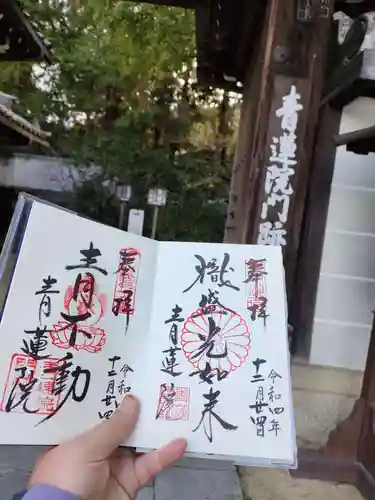 青蓮院門跡
奉拝
熾盛光如来
青蓮院
令和四年
十二月廿四日
奉拝
青不動
青蓮院
令和四
十二月廿